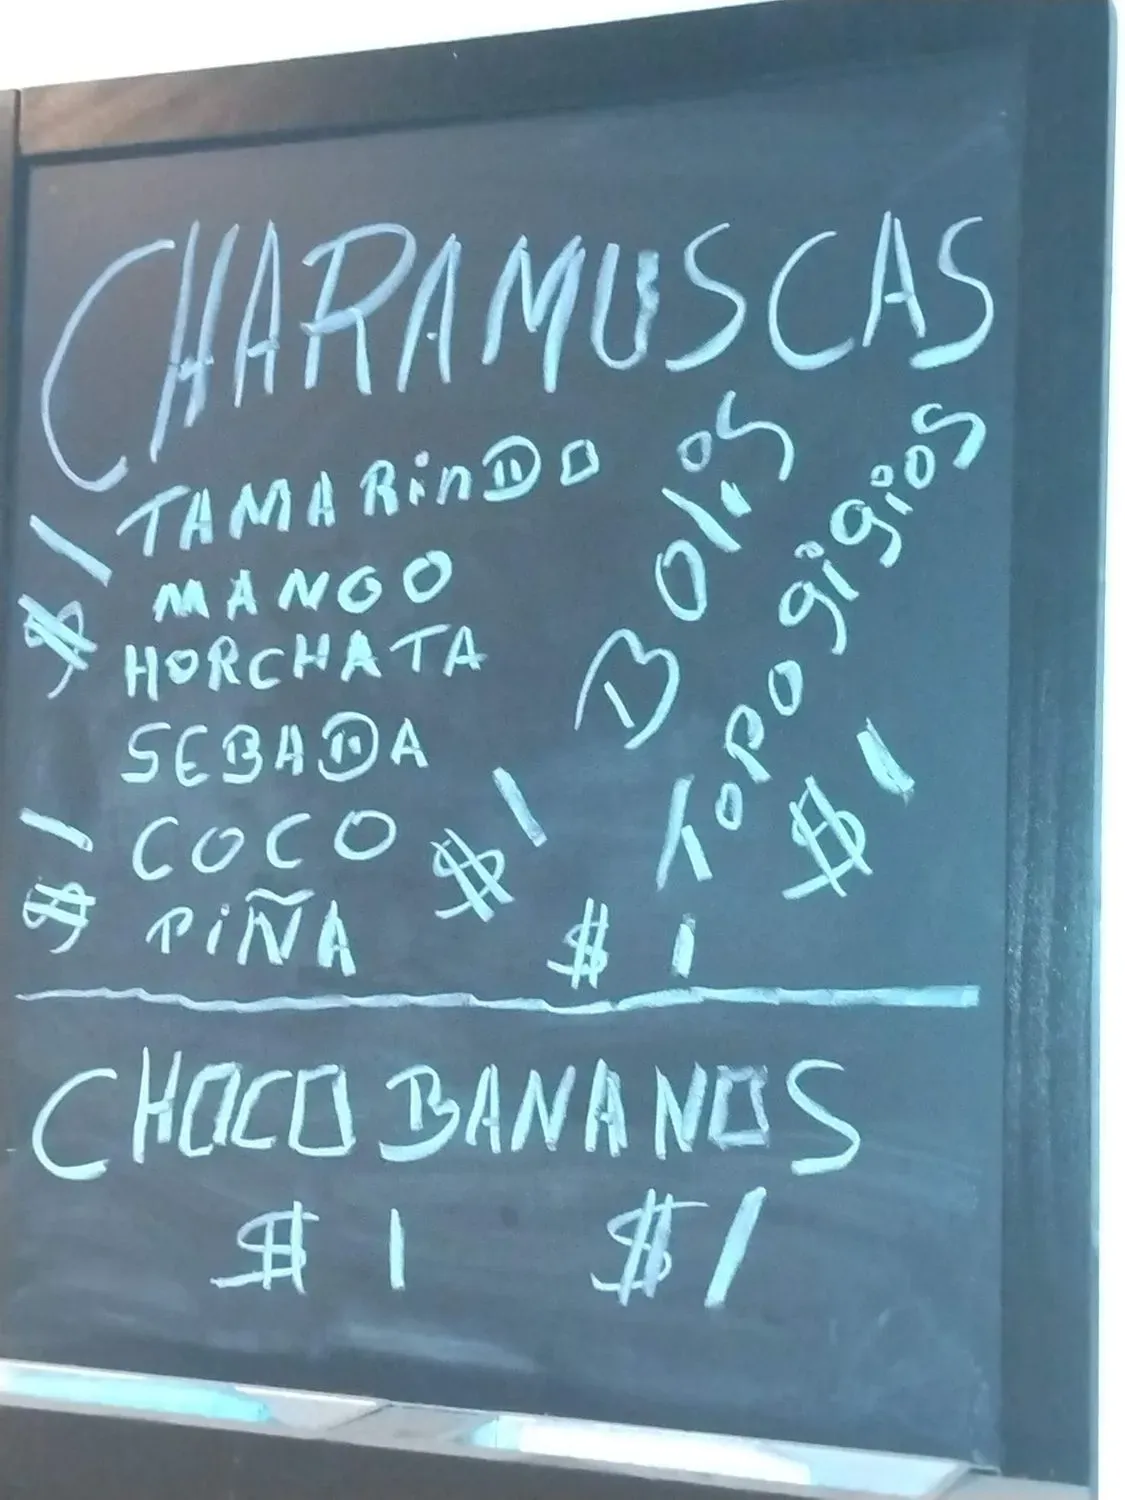 CHARAMUSCAS
TAMARINDO
MANGO
HORCHATA
SEBADA
COCO
PIÑA
$1
$1
$1
Bolos
Topogigios
$1
$1
CHOCOBANANOS
$1 $1